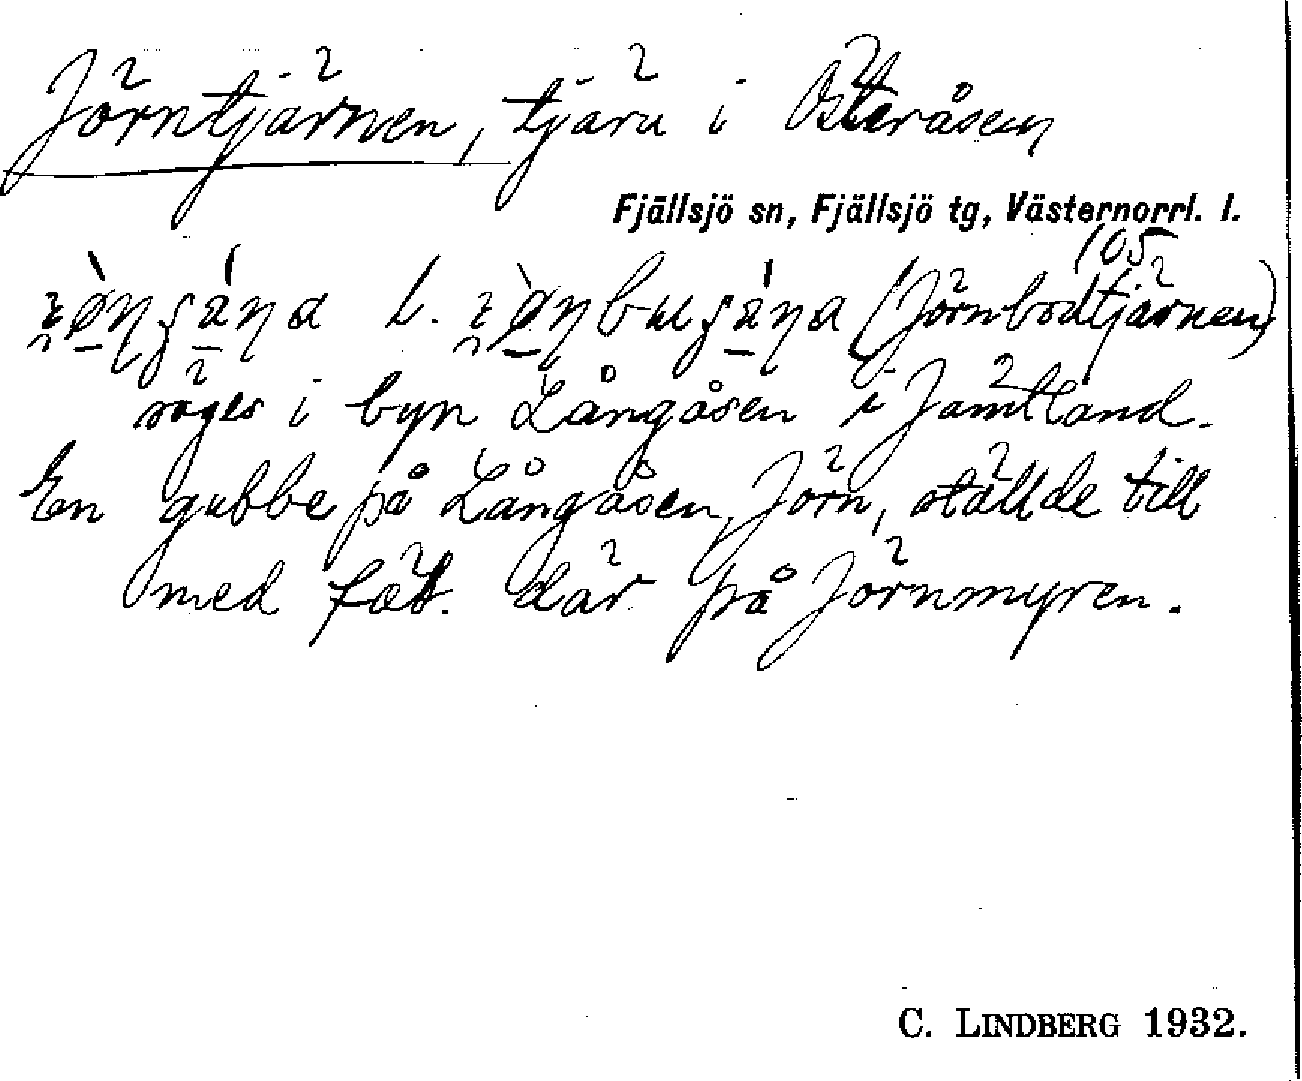 Jörntjärnen, tjärn i Österåsen
Fjällsjö sn, Fjällsjö tg, Västernorrl. l.
105
l. (Jörnbodtjärnen)
säges i byn Långåsen i Jämtland.
En gubbe på Långåsen, Jörn, ställde till
med fäb. där på Jörnmyren.
C. LINDBERG 1932.